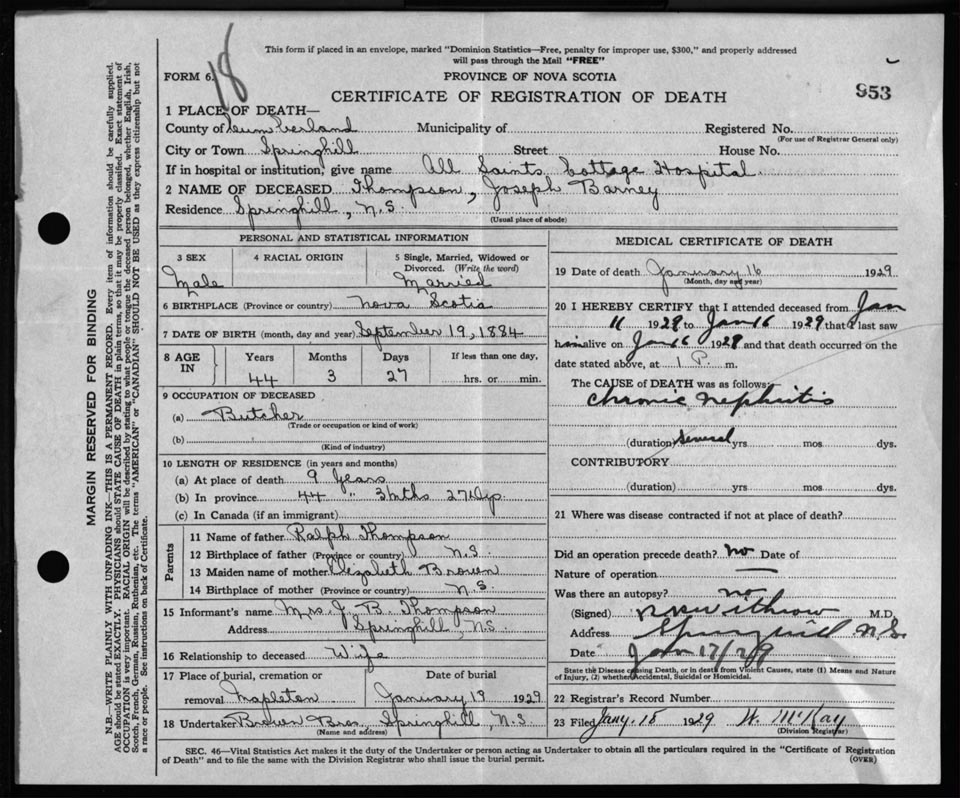 18
This form if placed in an envelope, marked "Dominion Statistics—Free, penalty for improper use, $300," and properly addressed
will pass through the Mail "FREE"
FORM 6.
PROVINCE OF NOVA SCOTIA
CERTIFICATE OF REGISTRATION OF DEATH
953
1 PLACE OF DEATH—
County of Cumberland Municipality of Registered No.
(For use of Registrar General only)
City or Town Springhill Street House No.
If in hospital or institution, give name All Saints Cottage Hospital.
2 NAME OF DECEASED Thompson, Joseph Barney
Residence Springhill, N.S.
(Usual place of abode)
PERSONAL AND STATISTICAL INFORMATION
3 SEX 4 RACIAL ORIGIN 5 Single, Married, Widowed or
Divorced. (Write the word)
Male Married
6 BIRTHPLACE (Province or country) Nova Scotia
7 DATE OF BIRTH (month, day and year) September 19, 1884
8 AGE IN Years Months Days If less than one day,
44 3 27 hrs. or min.
9 OCCUPATION OF DECEASED
(a) Butcher
(Trade or occupation or kind of work)
(b)
(Kind of industry)
10 LENGTH OF RESIDENCE (in years and months)
(a) At place of death 9 Years
(b) In province 44 " 3 Mths 27 Dys.
(c) In Canada (if an immigrant)
Parents
11 Name of father Ralph Thompson
12 Birthplace of father (Province or country) N.S.
13 Maiden name of mother Elizabeth Brown
14 Birthplace of mother (Province or country) N.S.
15 Informant's name Mrs J. B. Thompson
Address Springhill, N.S.
16 Relationship to deceased Wife
17 Place of burial, cremation or Date of burial
removal Mapleton January 19 1929
18 Undertaker Brown Bros. Springhill, N.S.
(Name and address)
MEDICAL CERTIFICATE OF DEATH
19 Date of death January 16 1929
(Month, day and year)
20 I HEREBY CERTIFY that I attended deceased from Jan
11 1929 to Jan 16 1929 that I last saw
him alive on Jan 16 1929 and that death occurred on the
date stated above, at 1 P. m.
The CAUSE of DEATH was as follows:
Chronic Nephritis
(duration) Several yrs mos dys.
CONTRIBUTORY
(duration) yrs mos dys.
21 Where was disease contracted if not at place of death?
Did an operation precede death? no Date of
Nature of operation —
Was there an autopsy? no
(Signed) Withrow M.D.
Address Springhill N.S.
Date Jan 17/29
State the Disease causing Death, or in death from Violent Causes, state (1) Means and Nature
of Injury, (2) whether Accidental, Suicidal or Homicidal.
22 Registrar's Record Number
23 Filed Jany. 18 1929 W. McKay
(Division Registrar)
SEC. 46—Vital Statistics Act makes it the duty of the Undertaker or person acting as Undertaker to obtain all the particulars required in the "Certificate of Registration
of Death" and to file the same with the Division Registrar who shall issue the burial permit.
(OVER)
MARGIN RESERVED FOR BINDING
N.B.—WRITE PLAINLY WITH UNFADING INK—THIS IS A PERMANENT RECORD. Every item of information should be carefully supplied.
AGE should be stated EXACTLY. PHYSICIANS should STATE CAUSE OF DEATH in plain terms, so that it may be properly classified. Exact statement of
OCCUPATION is very important. RACIAL ORIGIN will be described by stating to what people or tongue the deceased person belonged, whether English, Irish,
Scotch, French, German, Russian, Ruthenian, etc. The terms "AMERICAN" or "CANADIAN" SHOULD NOT BE USED as they express citizenship but not
a race or people. See instructions on back of Certificate.